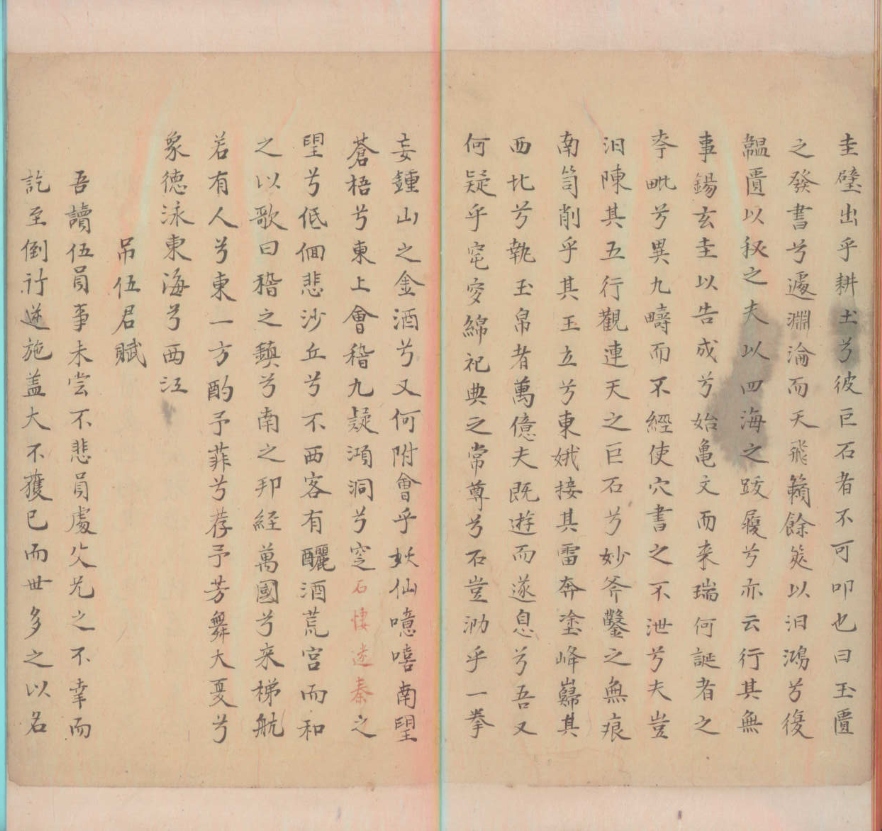 圭璧出乎耕土兮彼巨石者不可叩也曰玉匱
之發書兮遽淵淪而天飛籥餘筴以汩鴻兮復
韞匵以秘之夫以四海之跋履兮亦云行其無
事錫玄圭以告成兮始龜文而来瑞何誕者之
牽毗兮異九疇而不經使穴書之不泄兮夫豈
汨陳其五行觀連天之巨石兮妙斧鑿之無痕
南笥削乎其玉立兮東娥接其雷奔塗峰巋其
西圮兮執玉帛者萬億夫既逰而遂息兮吾又
何疑乎窀穸綿祀典之常尊兮石豈泐乎一拳
妄鍾山之金酒兮又何附會乎妖仙噫嘻南望
蒼梧兮東上會稽九疑澒洞兮窆石悽迷秦之
望兮低佪悲沙丘兮不西客有釃酒荒宫而和
之以歌曰稽之鎮兮南之邦經萬國兮来梯航
若有人兮東一方酌予菲兮荐予芳舞大夏兮
象德泳東海兮西江
吊伍君賦
吾讀伍員事未尝不悲員處父兄之不幸而
訖至倒行逆施盖大不獲已而世多之以名